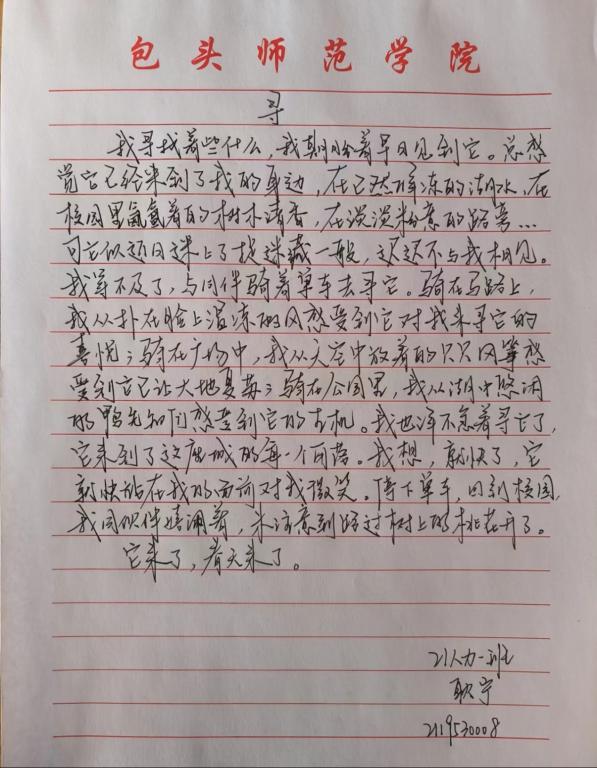 包头师范学院
寻
我寻找着些什么,我期盼着早日见到它。总感
觉它已经来到了我的身边,在已然解冻的湖水,在
校园里氤氲着的树木清香,在淡淡粉意的路旁…
可它似还日迷上了捉迷藏一般,迟迟不与我相见。
我等不及了,与同伴骑着单车去寻它。骑在马路上,
我从扑在脸上温凉的风感受到它对我来寻它的
喜悦;骑在广场中,我从天空中放着的只只风筝感
受到它已让大地复苏;骑在公园里,我从湖中悠闲
的鸭先知们感受到它的生机。我也浑不急着寻它了,
它来到了这座城的每一个角落。我想,就快了,它
就快能在我的面前对我微笑。停下单车,回到校园,
我同伙伴嬉闹着,未注意到路过树上的桃花开了。
它来了,春天来了。
21人力一班
耿宁
2119530008